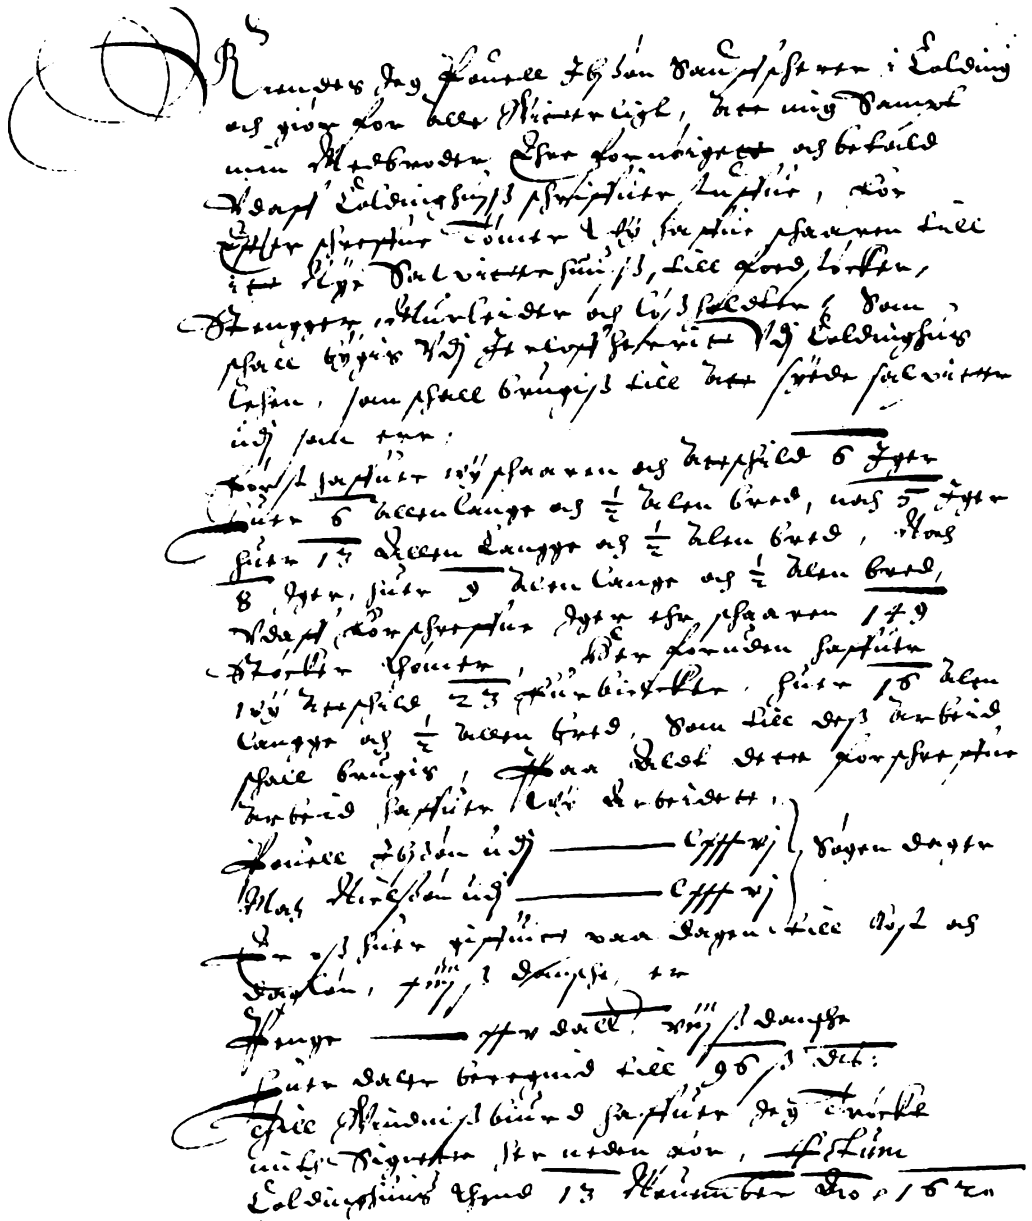 Kiendes Jeg Pouell Ibsön Saugschierer i Colding
och giör for Alle Witterligt, Att mig Sampt
min Medbroder Ehre fornöigett och betald
Vdaff Coldinghuuß schriffuer stuffue, for
Efter schreffne Tömer Wy haffue schaaren till
itt Nye Salpitterhuuß, till foedstöcker,
Stengger, Murleider och Lößholdter, Som
schall bygis Vdj Jerloffherritt Vdj Coldinghus
Lehen, som schall brugiß till Att syede salpitter
udj som err.
Först haffuer wy schaaren och Attschild 6 Eger
huer 6 Allen Lange och ½ Alen bred, noch 5 Eger
huer 13 Allen Langge och ½ Alen bred, Noch
8 Eger, huer 9 Alen Lange och ½ Alen bred,
Vdaff forschreffne Eger ehr schaaren 149
Stöcker thömer, Der foruden haffuer
wy Attschild 23 Furbielcker, huer 16 Alen
Langge och ½ Allen bred, Som till deß Arbeid
schall brugis, Paa Aldt dette forschreffne
Arbeid haffuer Wy Arbeidett,
Pouell Ibsön udj ——— Lxxxvj } Sögen dager
Matz Nielssön udj ——— Lxxxvj
Er oß huer giffuitt paa dagen till Kost och
daglön, xiiij ß dansche, er
Penge ——— xxv dall: viij ß dansche
huer daler beregnid till 96 ß dt:
Till Windnißbiurd haffuer Jeg Tröckt
mitt Signett her neden for, Actum
Coldinghuus thend 13 Nouember Ao 1620